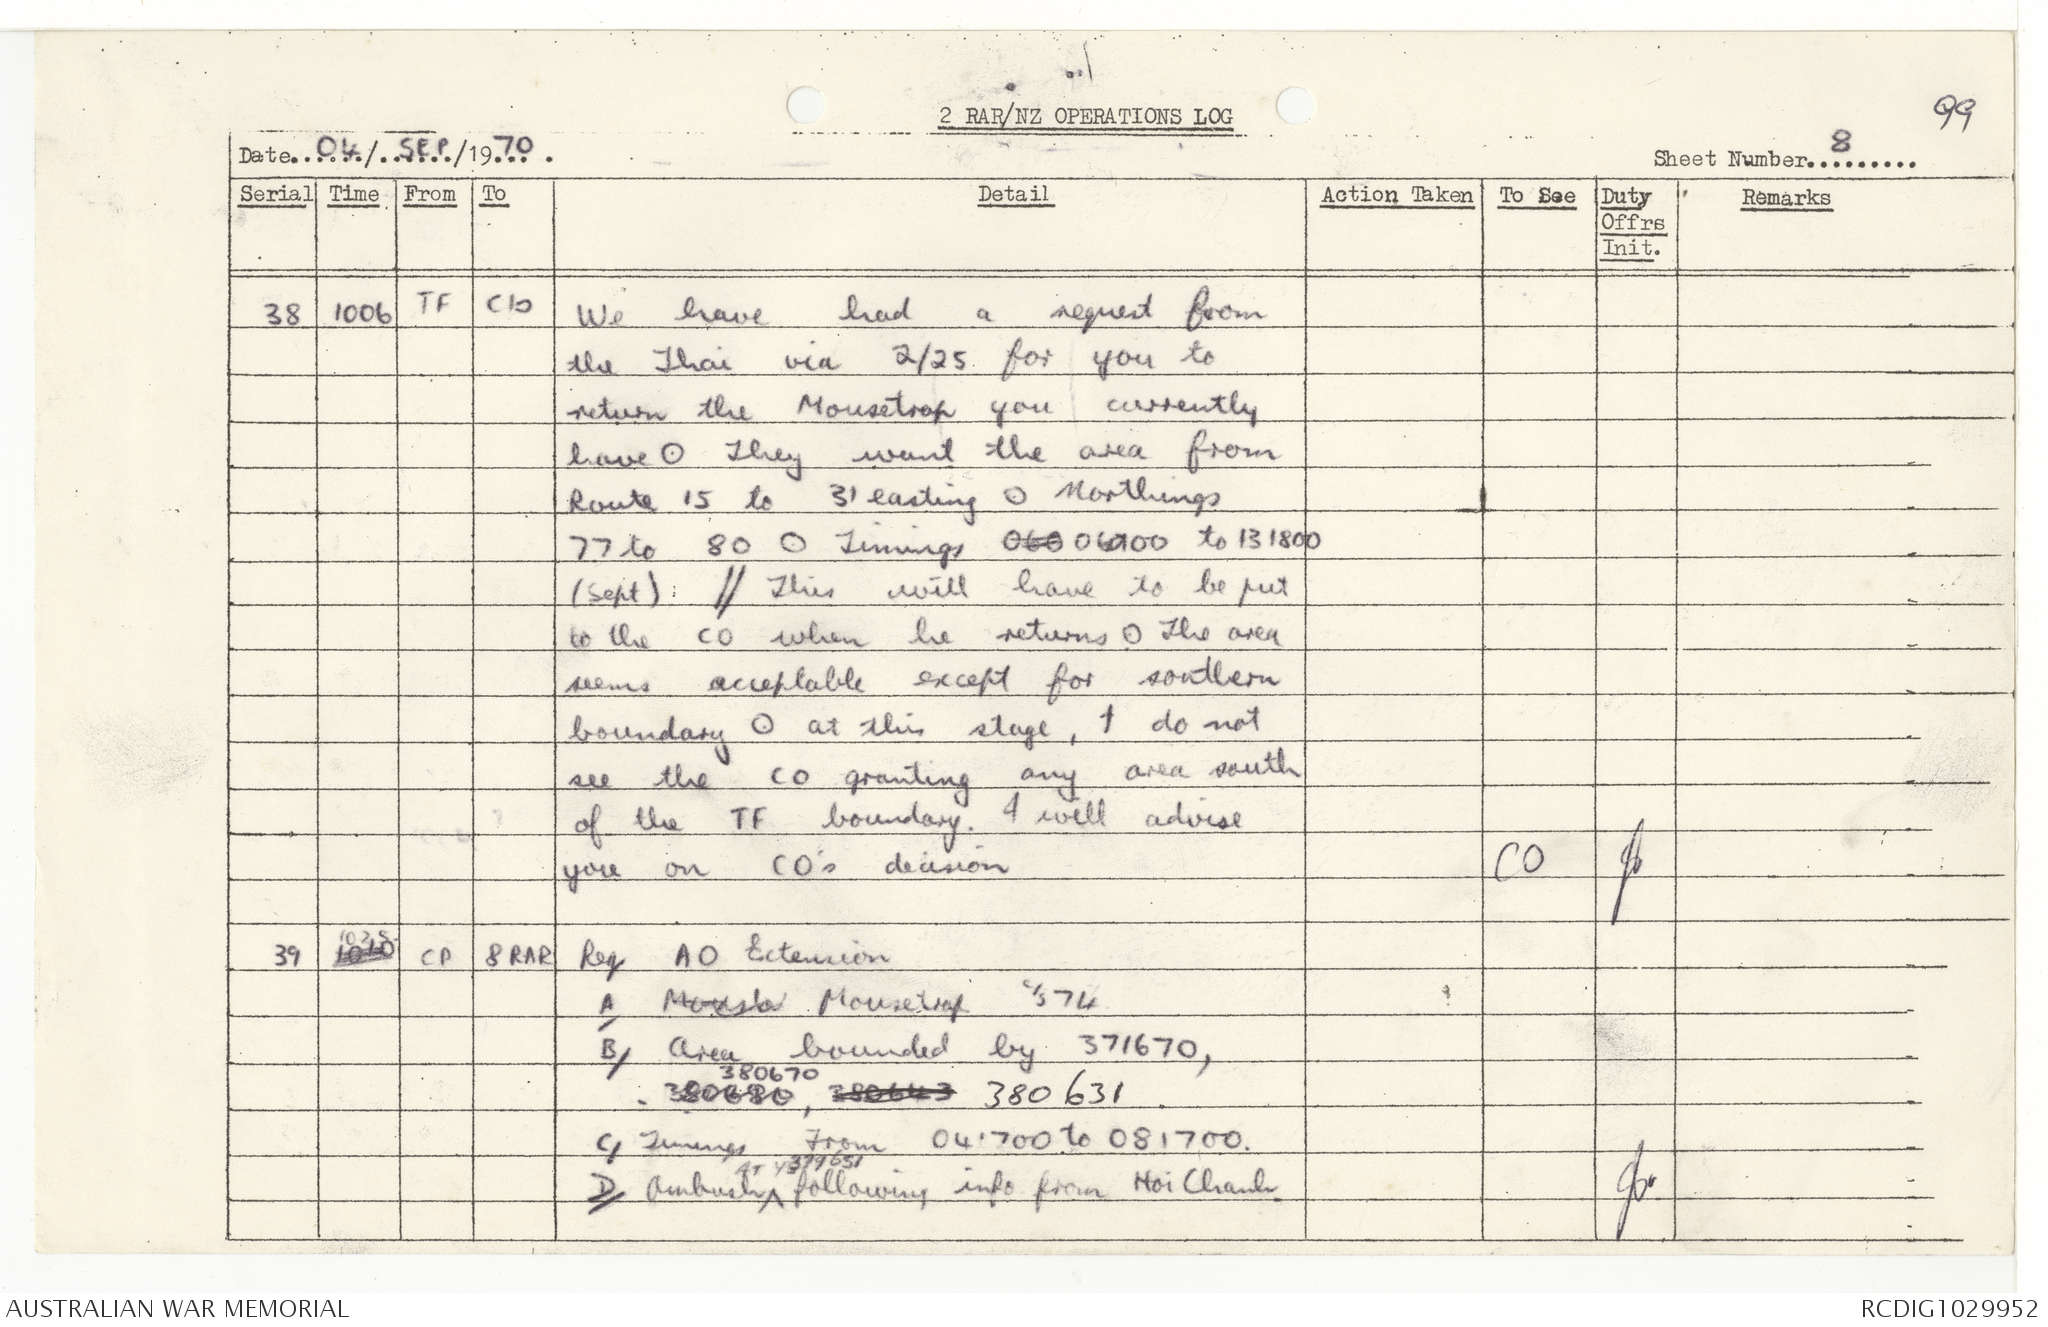 99
2 RAR/NZ OPERATIONS LOG
Date 04/SEP/1970.
Sheet Number 8
Serial Time From To Detail Action Taken To See Duty Offrs Init. Remarks
38 1006 TF We have had a request from
the Thai via 2/25 for you to
return the Mousetrap you currently
have ⊙ They want the area from
Route 15 to 31 easting ⊙ Northings
77 to 80 ⊙ Timings 060 060900 to 131800
(Sept): // This will have to be put
to the CO when he returns ⊙ The area
seems acceptable except for southern
boundary ⊙ at this stage, I do not
see the CO granting any area south
of the TF boundary. I will advise
you on CO's decision CO
39 1025 1010 CP 8 RAR Req AO Extension
A Mousetrap 574
B/ Area bounded by 371670,
380670
380680, 380643 380631.
C/ Timings From 041700 to 081700.
AT YS379631
D/ Ambush ⋀ following info from Hoi Chanh
AUSTRALIAN WAR MEMORIAL
RCDIG1029952